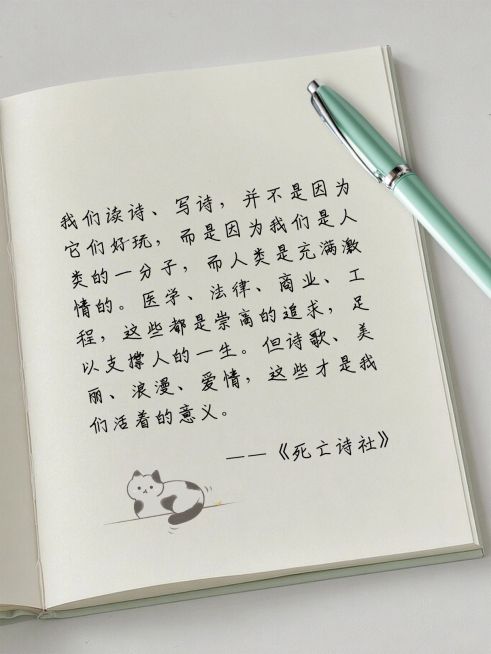 我们读诗、写诗，并不是因为
它们好玩，而是因为我们是人
类的一分子，而人类是充满激
情的。医学、法律、商业、工
程，这些都是崇高的追求，足
以支撑人的一生。但诗歌、美
丽、浪漫、爱情，这些才是我
们活着的意义。
——《死亡诗社》